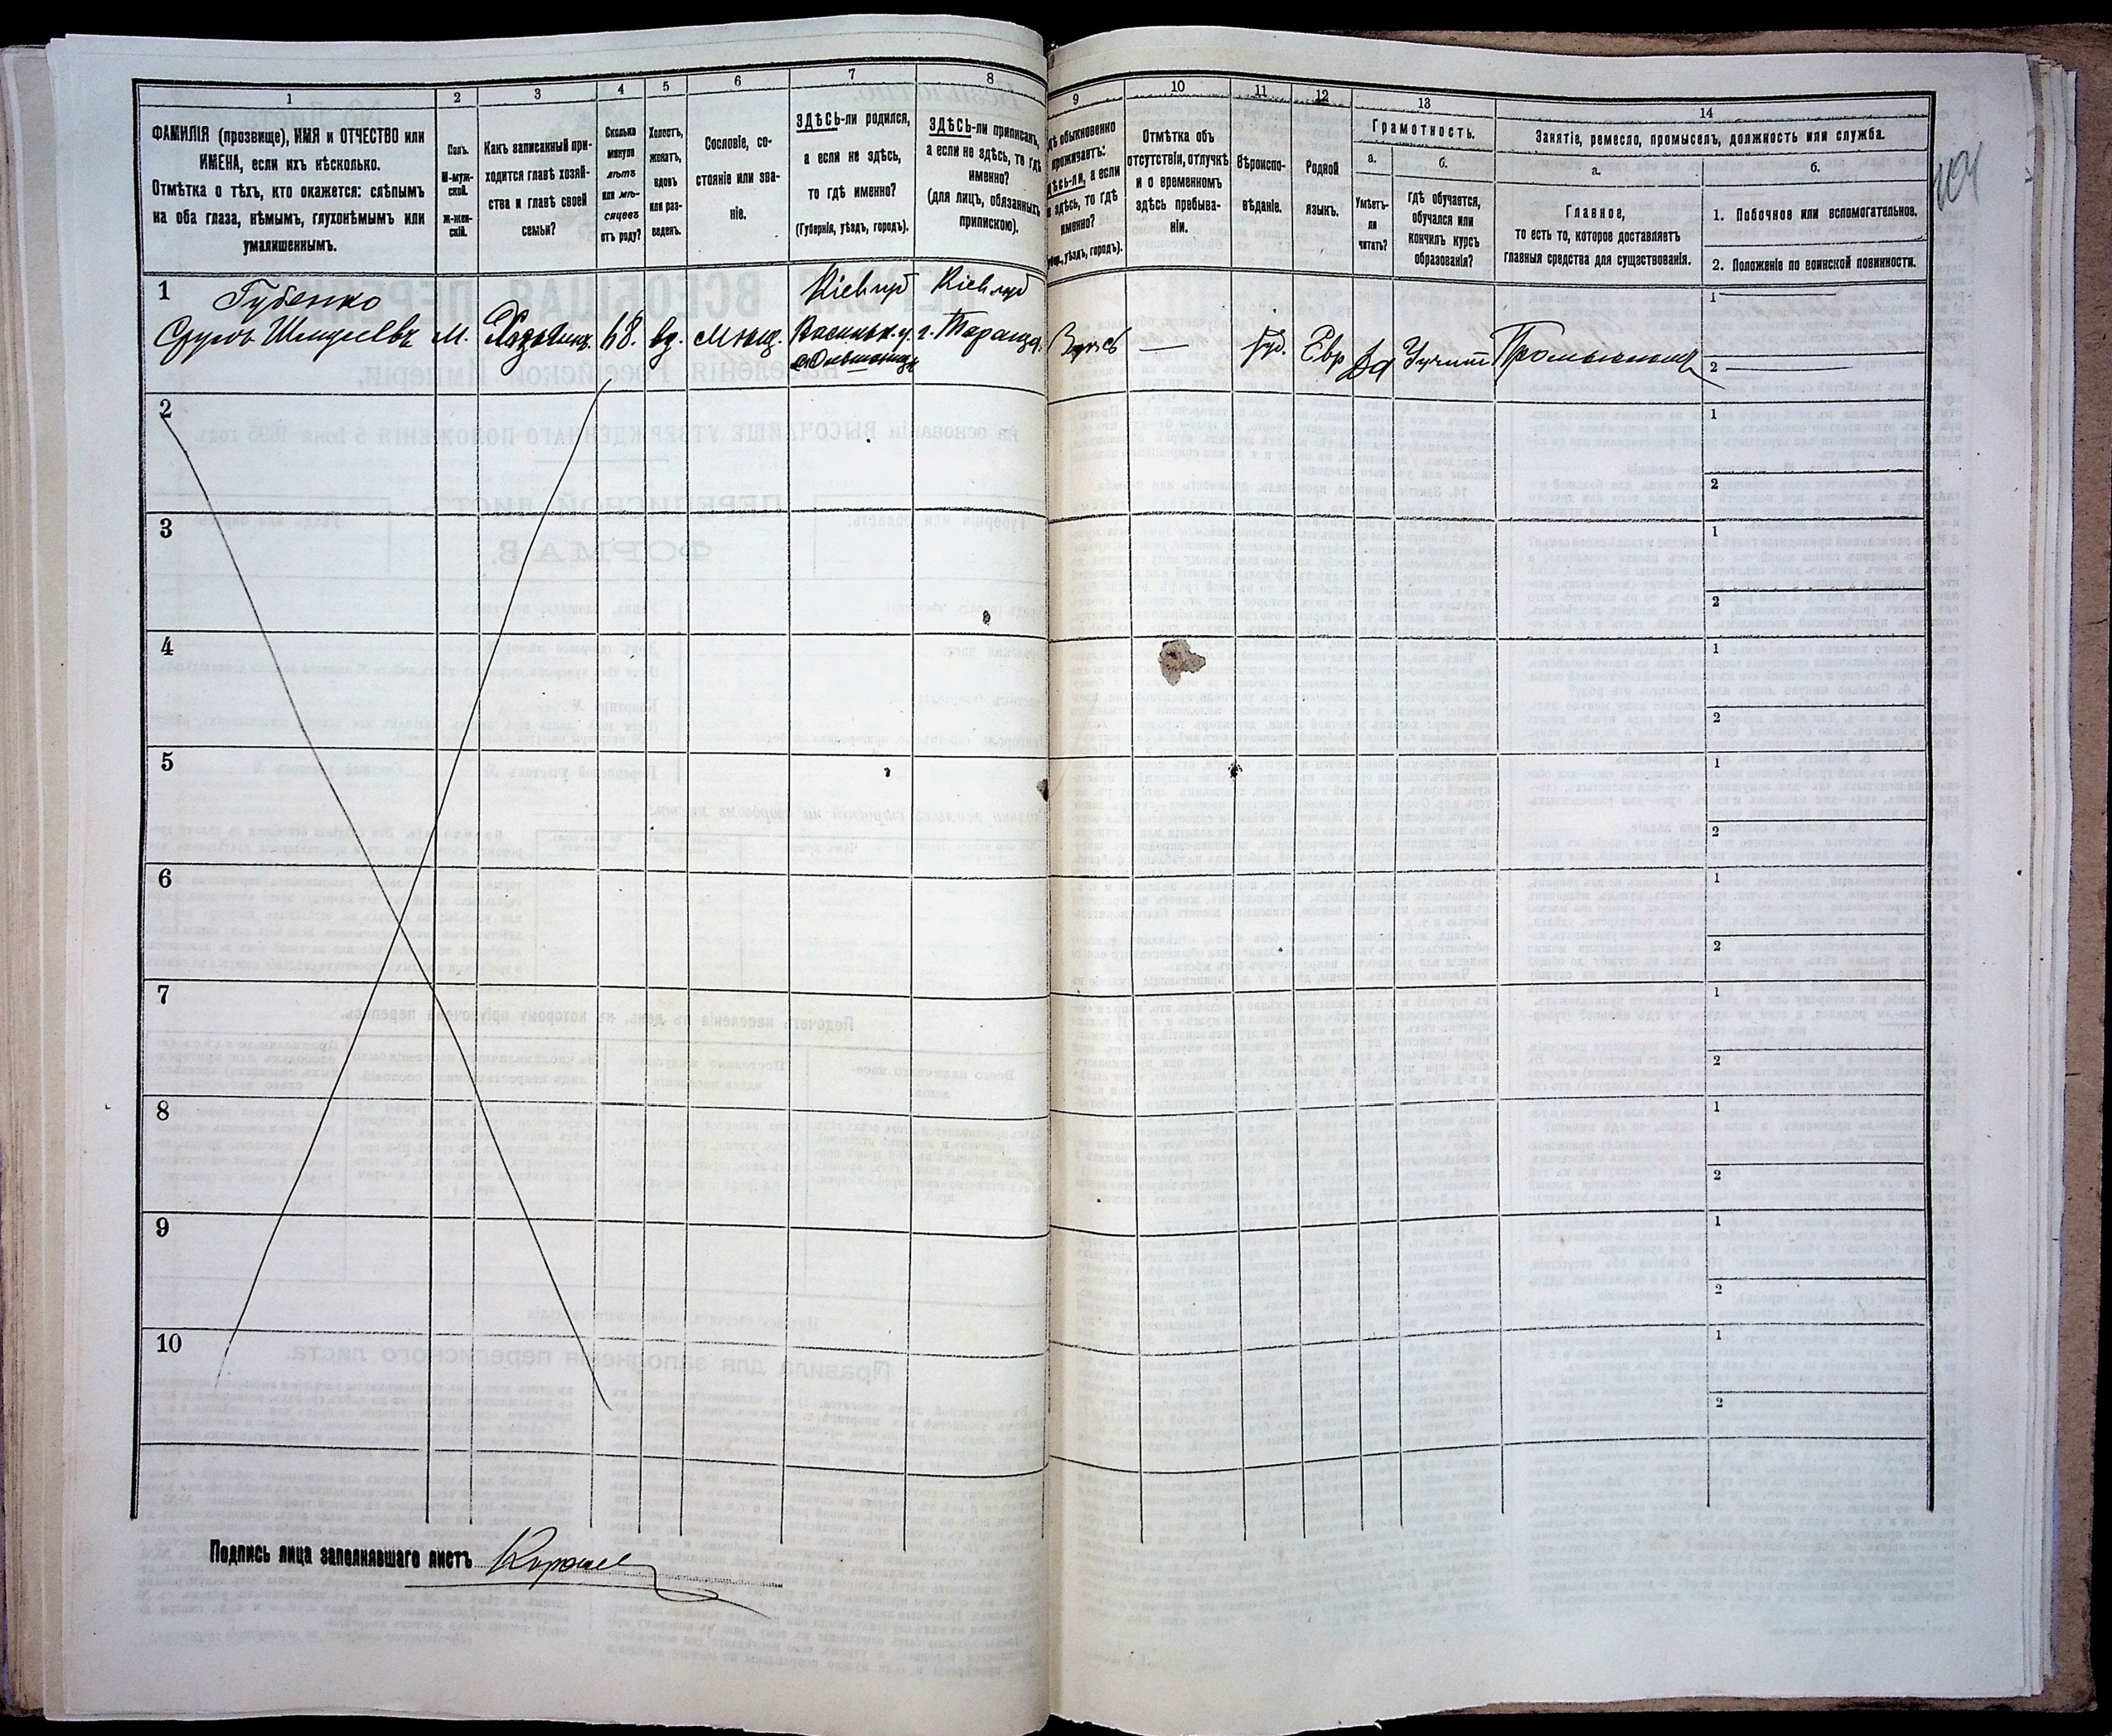 1
2
3
4
5
6
7
8
9
10
11
12
13
14
ФАМИЛІЯ (прозвище), ИМЯ и ОТЧЕСТВО или
ИМЕНА, если ихъ нѣсколько.
Отмѣтка о тѣхъ, кто окажется: слѣпымъ
на оба глаза, нѣмымъ, глухонѣмымъ или
умалишеннымъ.
Полъ.
М-муж-
ской.
Ж-жен-
скій.
Какъ записанный при-
ходится главѣ хозяй-
ства и главѣ своей
семьи?
Сколько
минуло
лѣтъ
или мѣ-
сяцевъ
отъ роду?
Холостъ,
женатъ,
вдовъ
или раз-
веденъ.
Сословіе, со-
стояніе или зва-
ніе.
ЗДѢСЬ-ли родился,
а если не здѣсь,
то гдѣ именно?
(Губернія, уѣздъ, городъ).
ЗДѢСЬ-ли приписанъ,
а если не здѣсь, то гдѣ
именно?
(для лицъ, обязанныхъ
припискою).
обыкновенно
проживаетъ:
а если
здѣсь, то гдѣ
именно?
уѣздъ, городъ).
Отмѣтка объ
отсутствіи, отлучкѣ
и о временномъ
здѣсь пребыва-
ніи.
Вѣроиспо-
вѣданіе.
Родной
языкъ.
Грамотность.
а.
Умѣетъ-
ли
читать?
б.
гдѣ обучается,
обучался или
кончилъ курсъ
образованія?
Занятіе, ремесло, промыселъ, должность или служба.
а.
Главное,
то есть то, которое доставляетъ
главныя средства для существованія.
б.
1. Побочное или вспомогательное.
2. Положеніе по воинской повинности.
1
Губенко
М. Хозяинъ 68. вд. Мѣщ.
Кіев. губ
Васильк. у.
Кіев. губ
г. Тараща.
Здѣсь — Іуд. Евр Да
1
2
2
1
2
3
1
2
4
1
2
5
1
2
6
1
2
7
1
2
8
1
2
9
1
2
10
1
2
Подпись лица заполнявшаго листъ